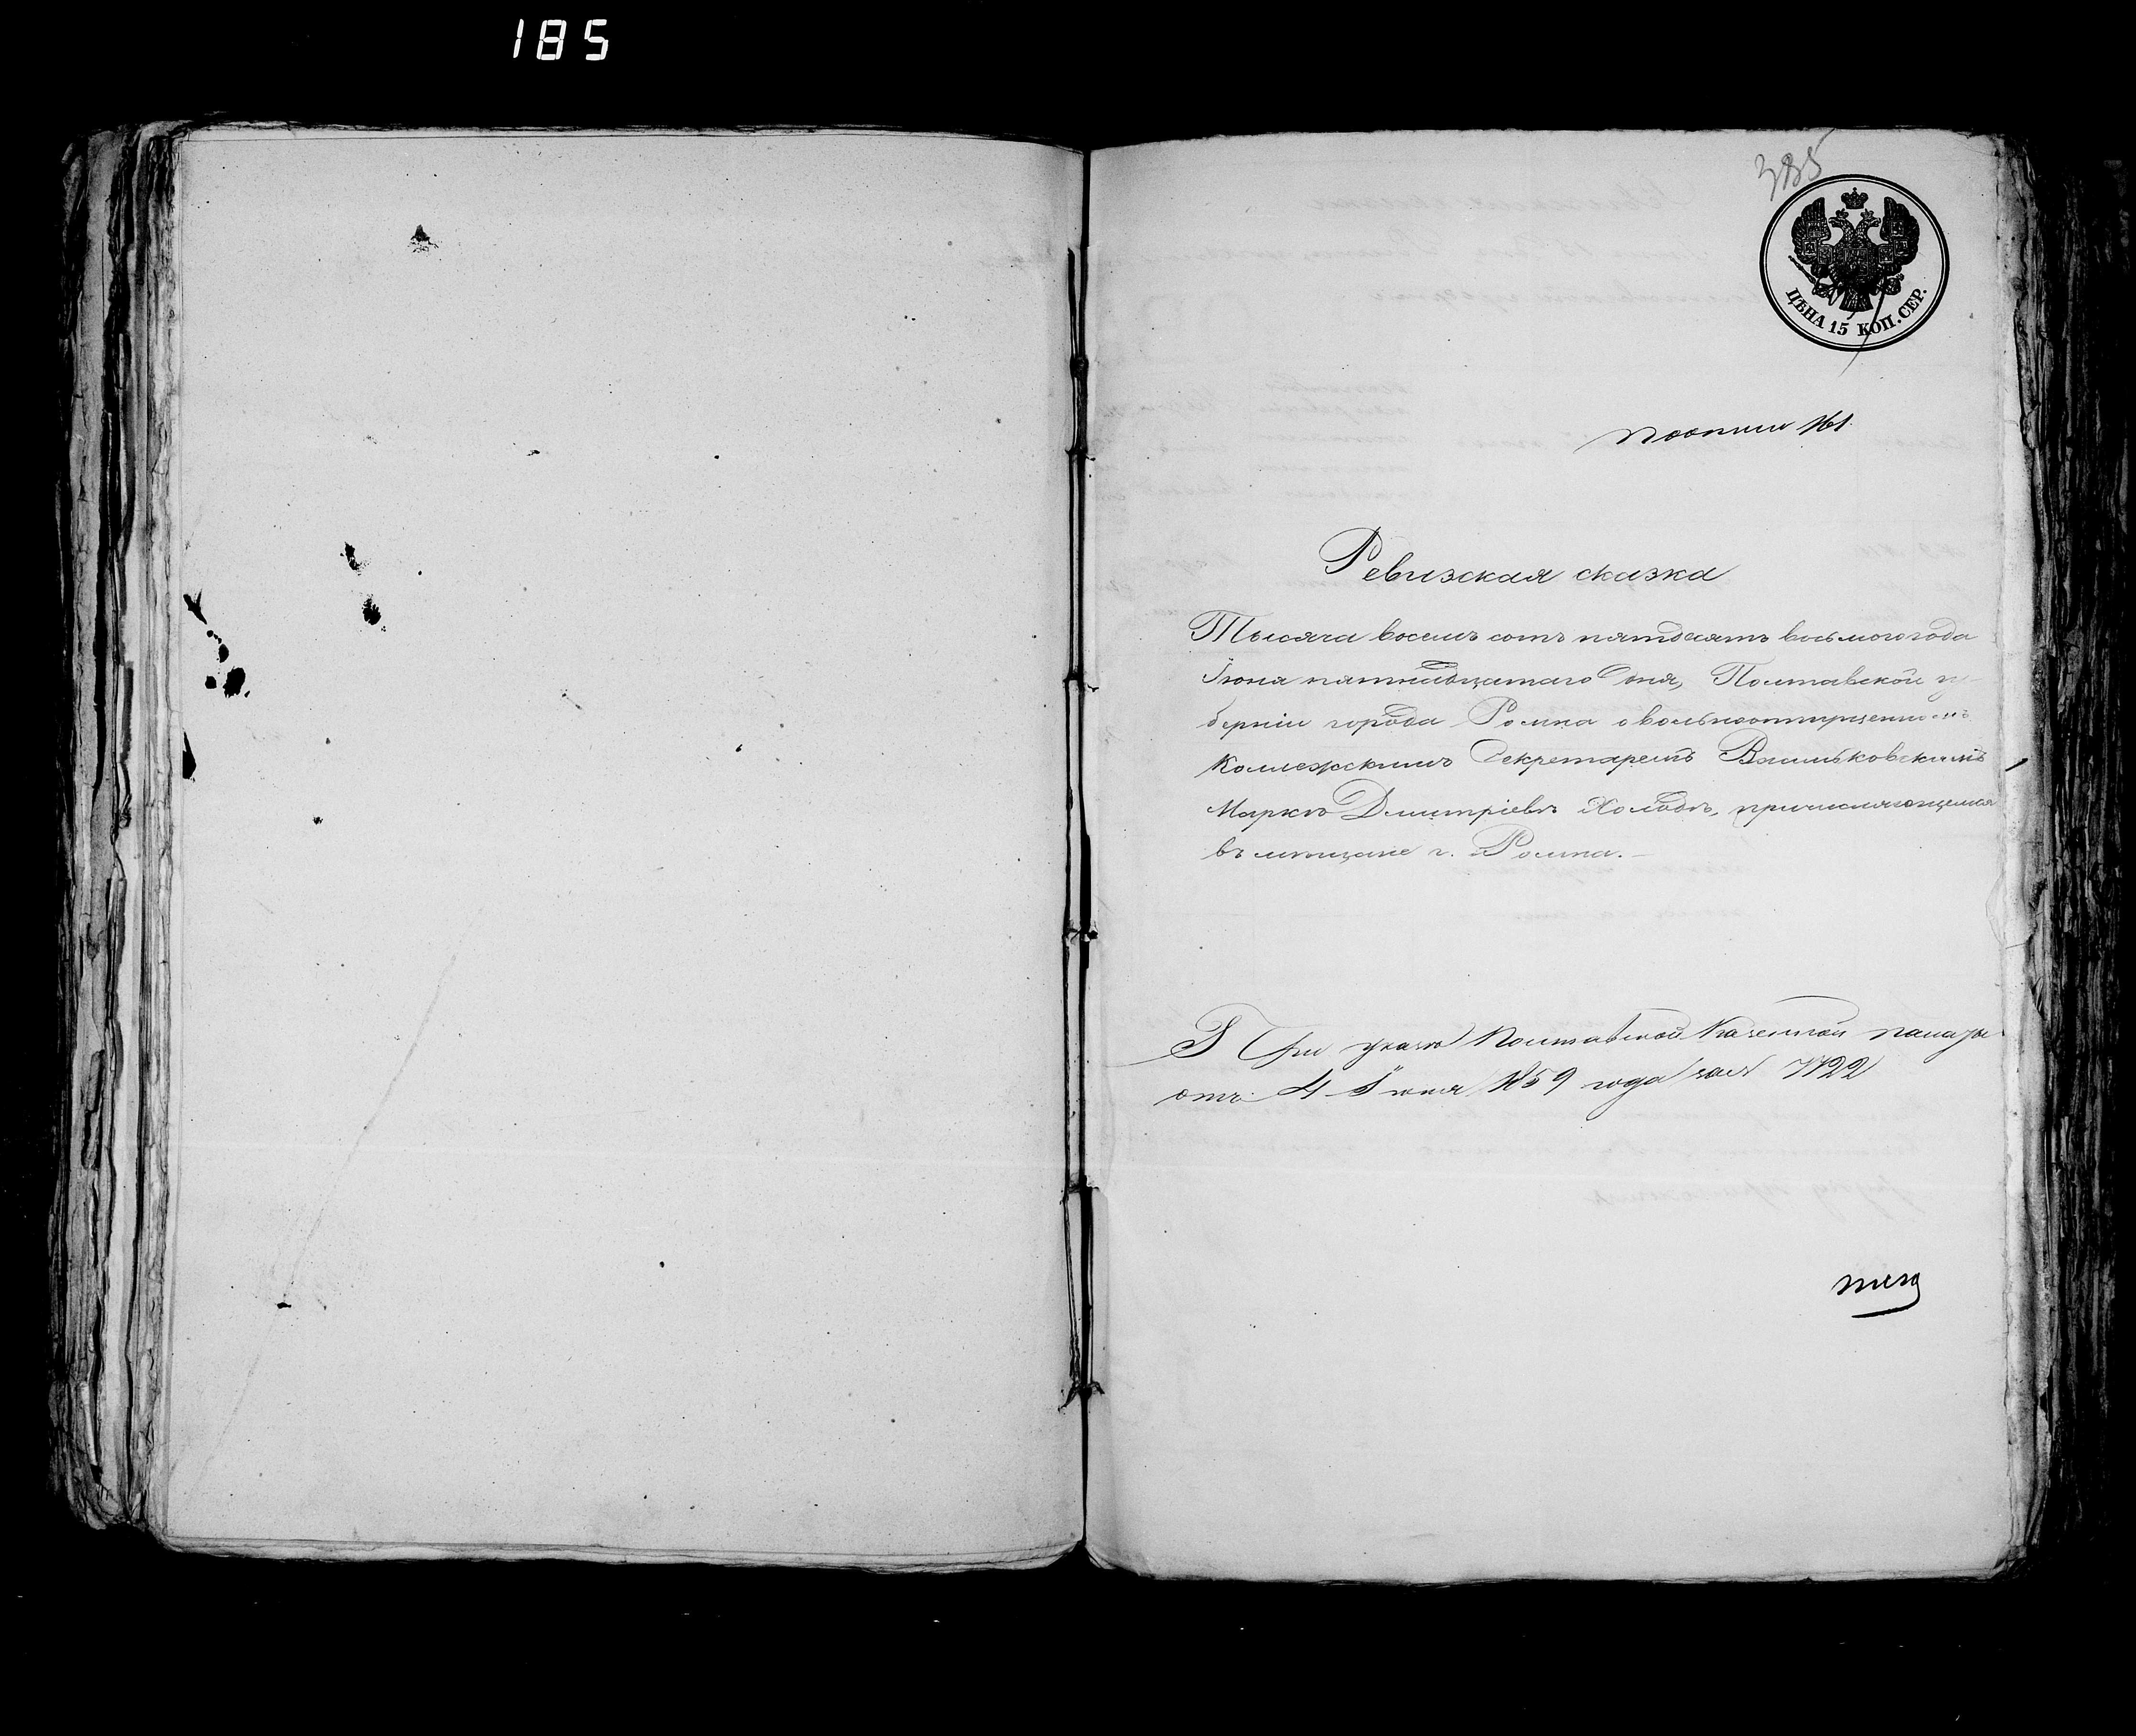 185
385
ЦѢНА 15 КОП. СЕР.
по описи 161
Ревизская сказка
Тысяча восемь сотъ пятдесятъ восьмого года
Іюня пятнадцатаго дня, Полтавской гу-
берніи города Ромна о вольноотпущенномъ
Коллежскимъ Секретаремъ Васильковскимъ
Маркѣ Дмитріевѣ Холодѣ, причисляющемся
въ мѣщане г. Ромна.-
При указѣ Полтавской Казенной палаты
отъ 4 Іюня 1859 года за № 7722